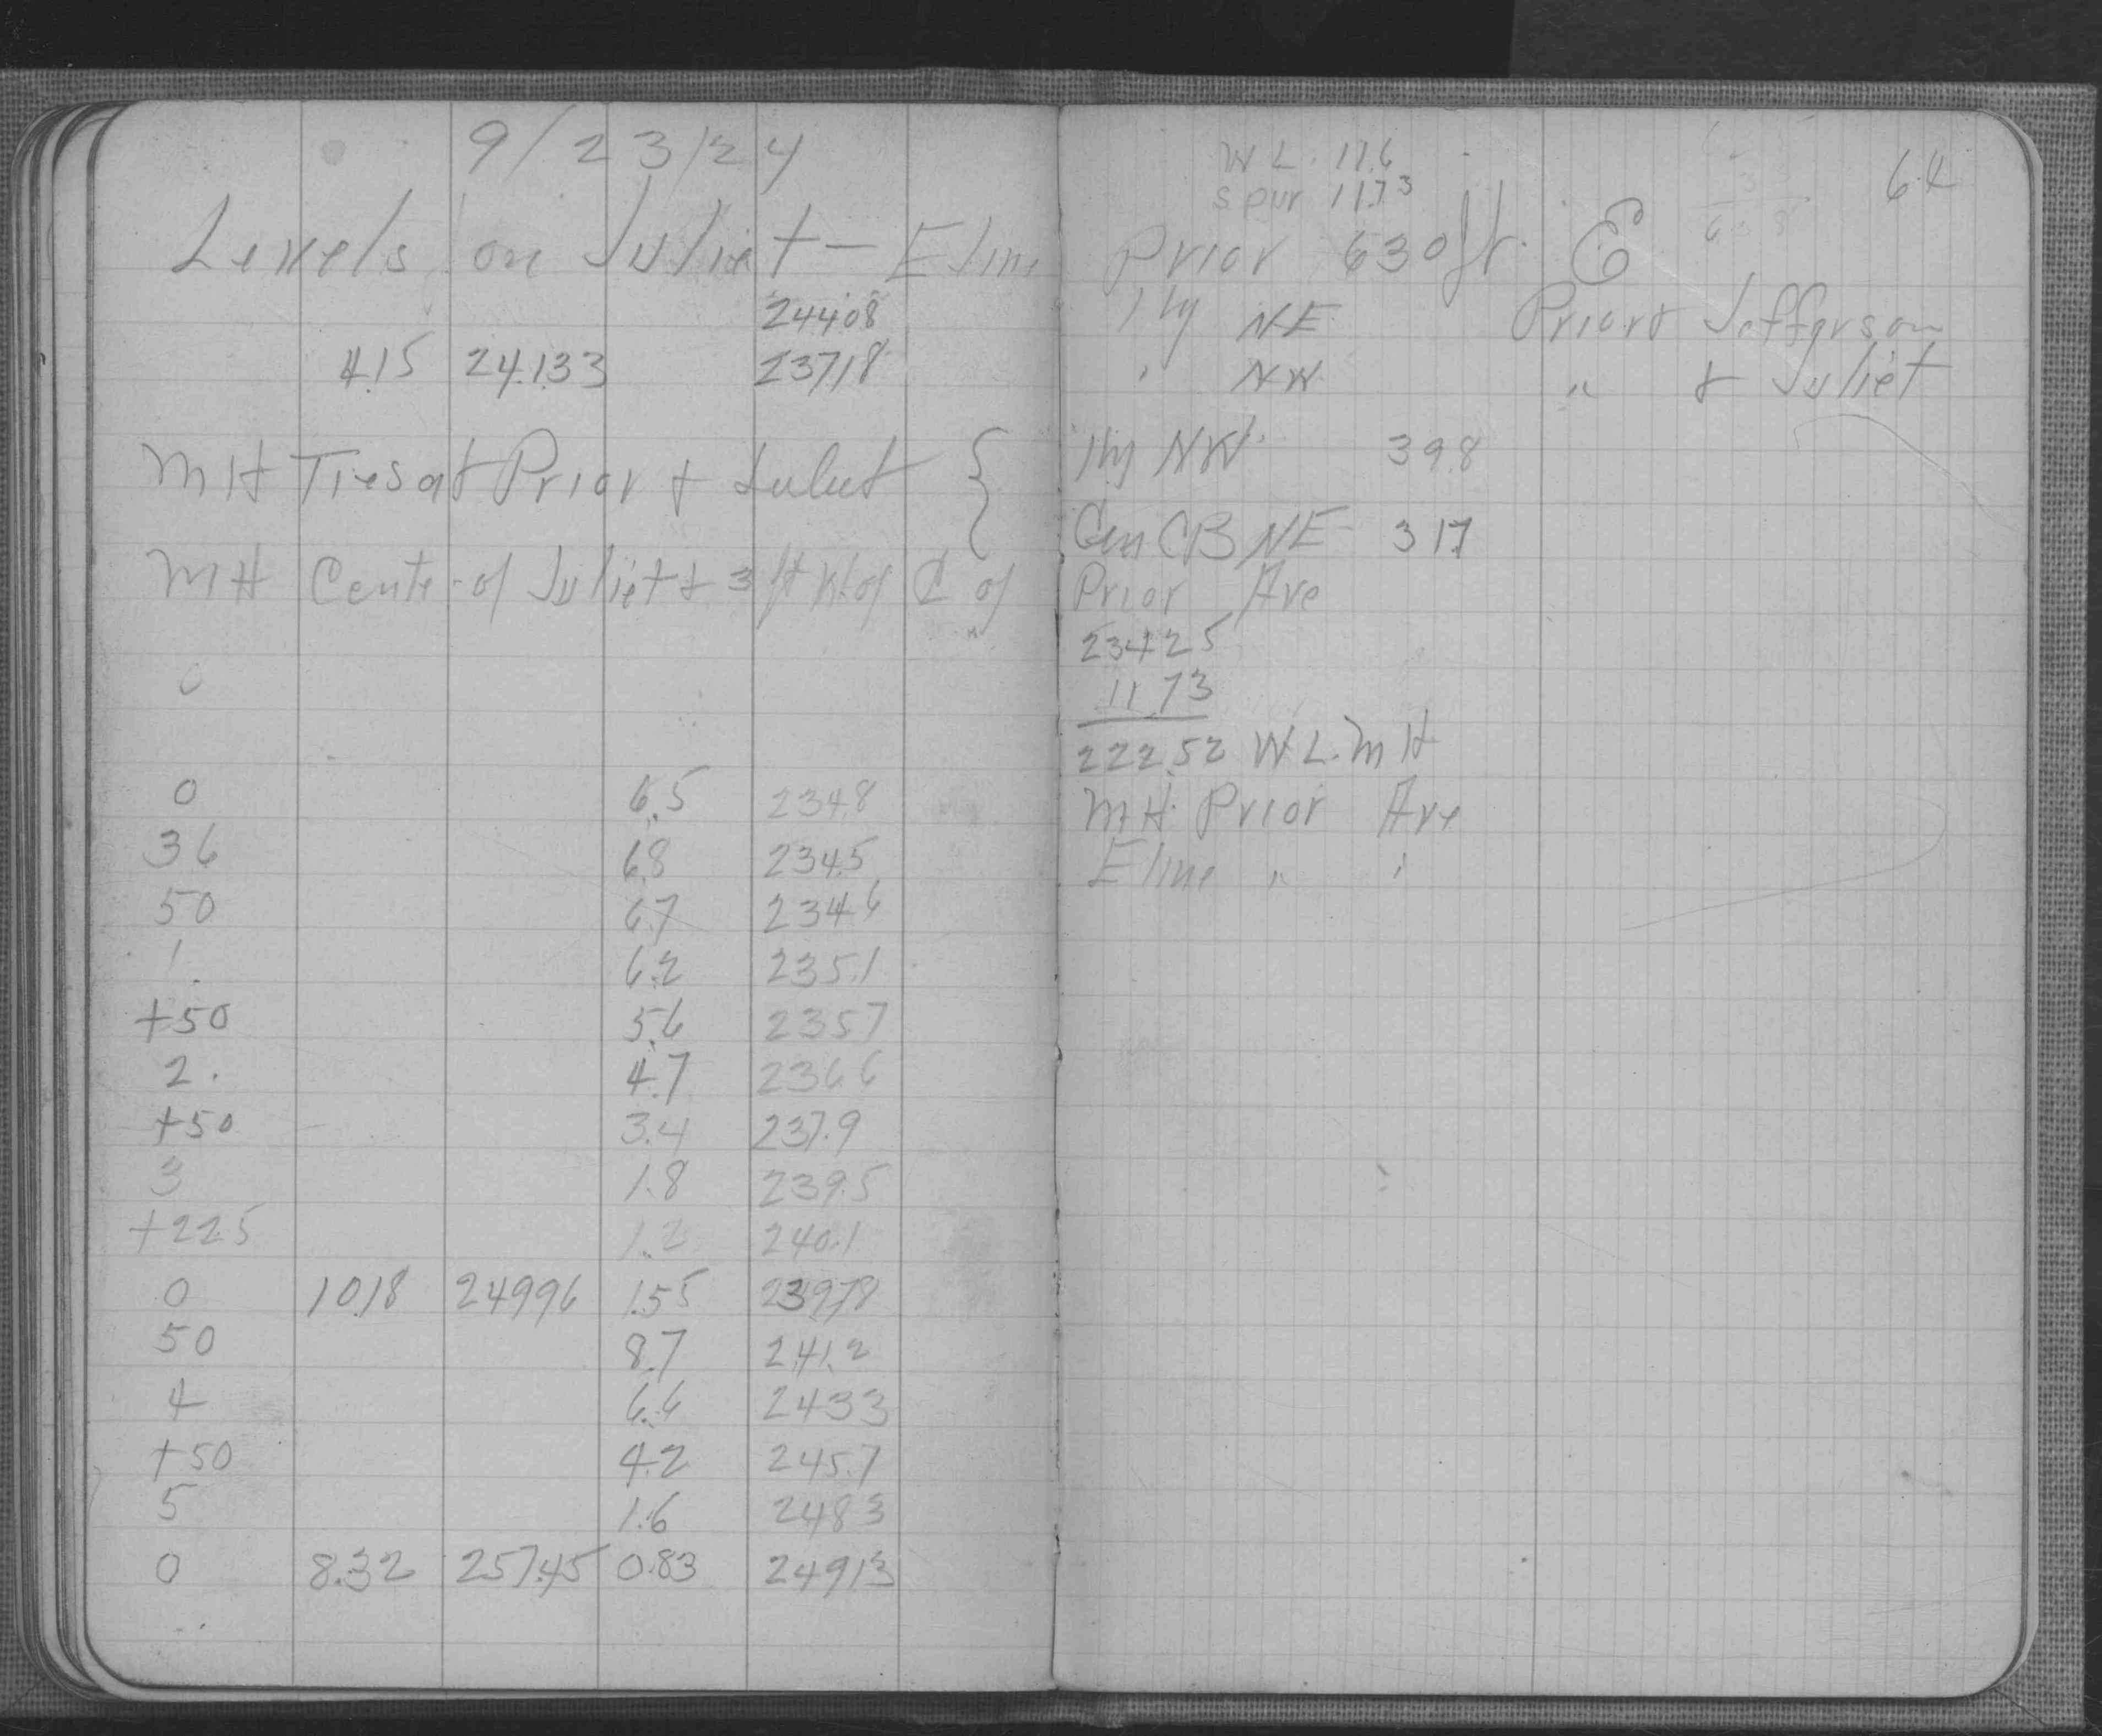 9/23/24
Levels on Juliet — E line
24408
4.15 241.33 23718
MH Ties at Prior + Juliet {
MH Center of Juliet + 3 ft W. of ℄ of
0 6.5 234.8
36 6.8 234.5
50 6.7 234.6
1. 6.2 235.1
+50 5.6 235.7
2. 4.7 236.6
+50 3.4 237.9
3 1.8 239.5
+225 1.2 240.1
0 10.18 249.96 1.55 239.78
50 8.7 241.2
4 6.6 243.3
+50 4.2 245.7
5 1.6 248.3
0 8.32 257.45 0.83 249.13
64
W L. 11.6
spur 11.73
Prior 630 ft. E
Hy NE Prior + Jefferson
" NW " + Juliet
Hy NW. 39.8
Cen CB NE 31.7
Prior Ave
234.25
11.73
222.52 W L. MH
MH Prior Ave
E line " "